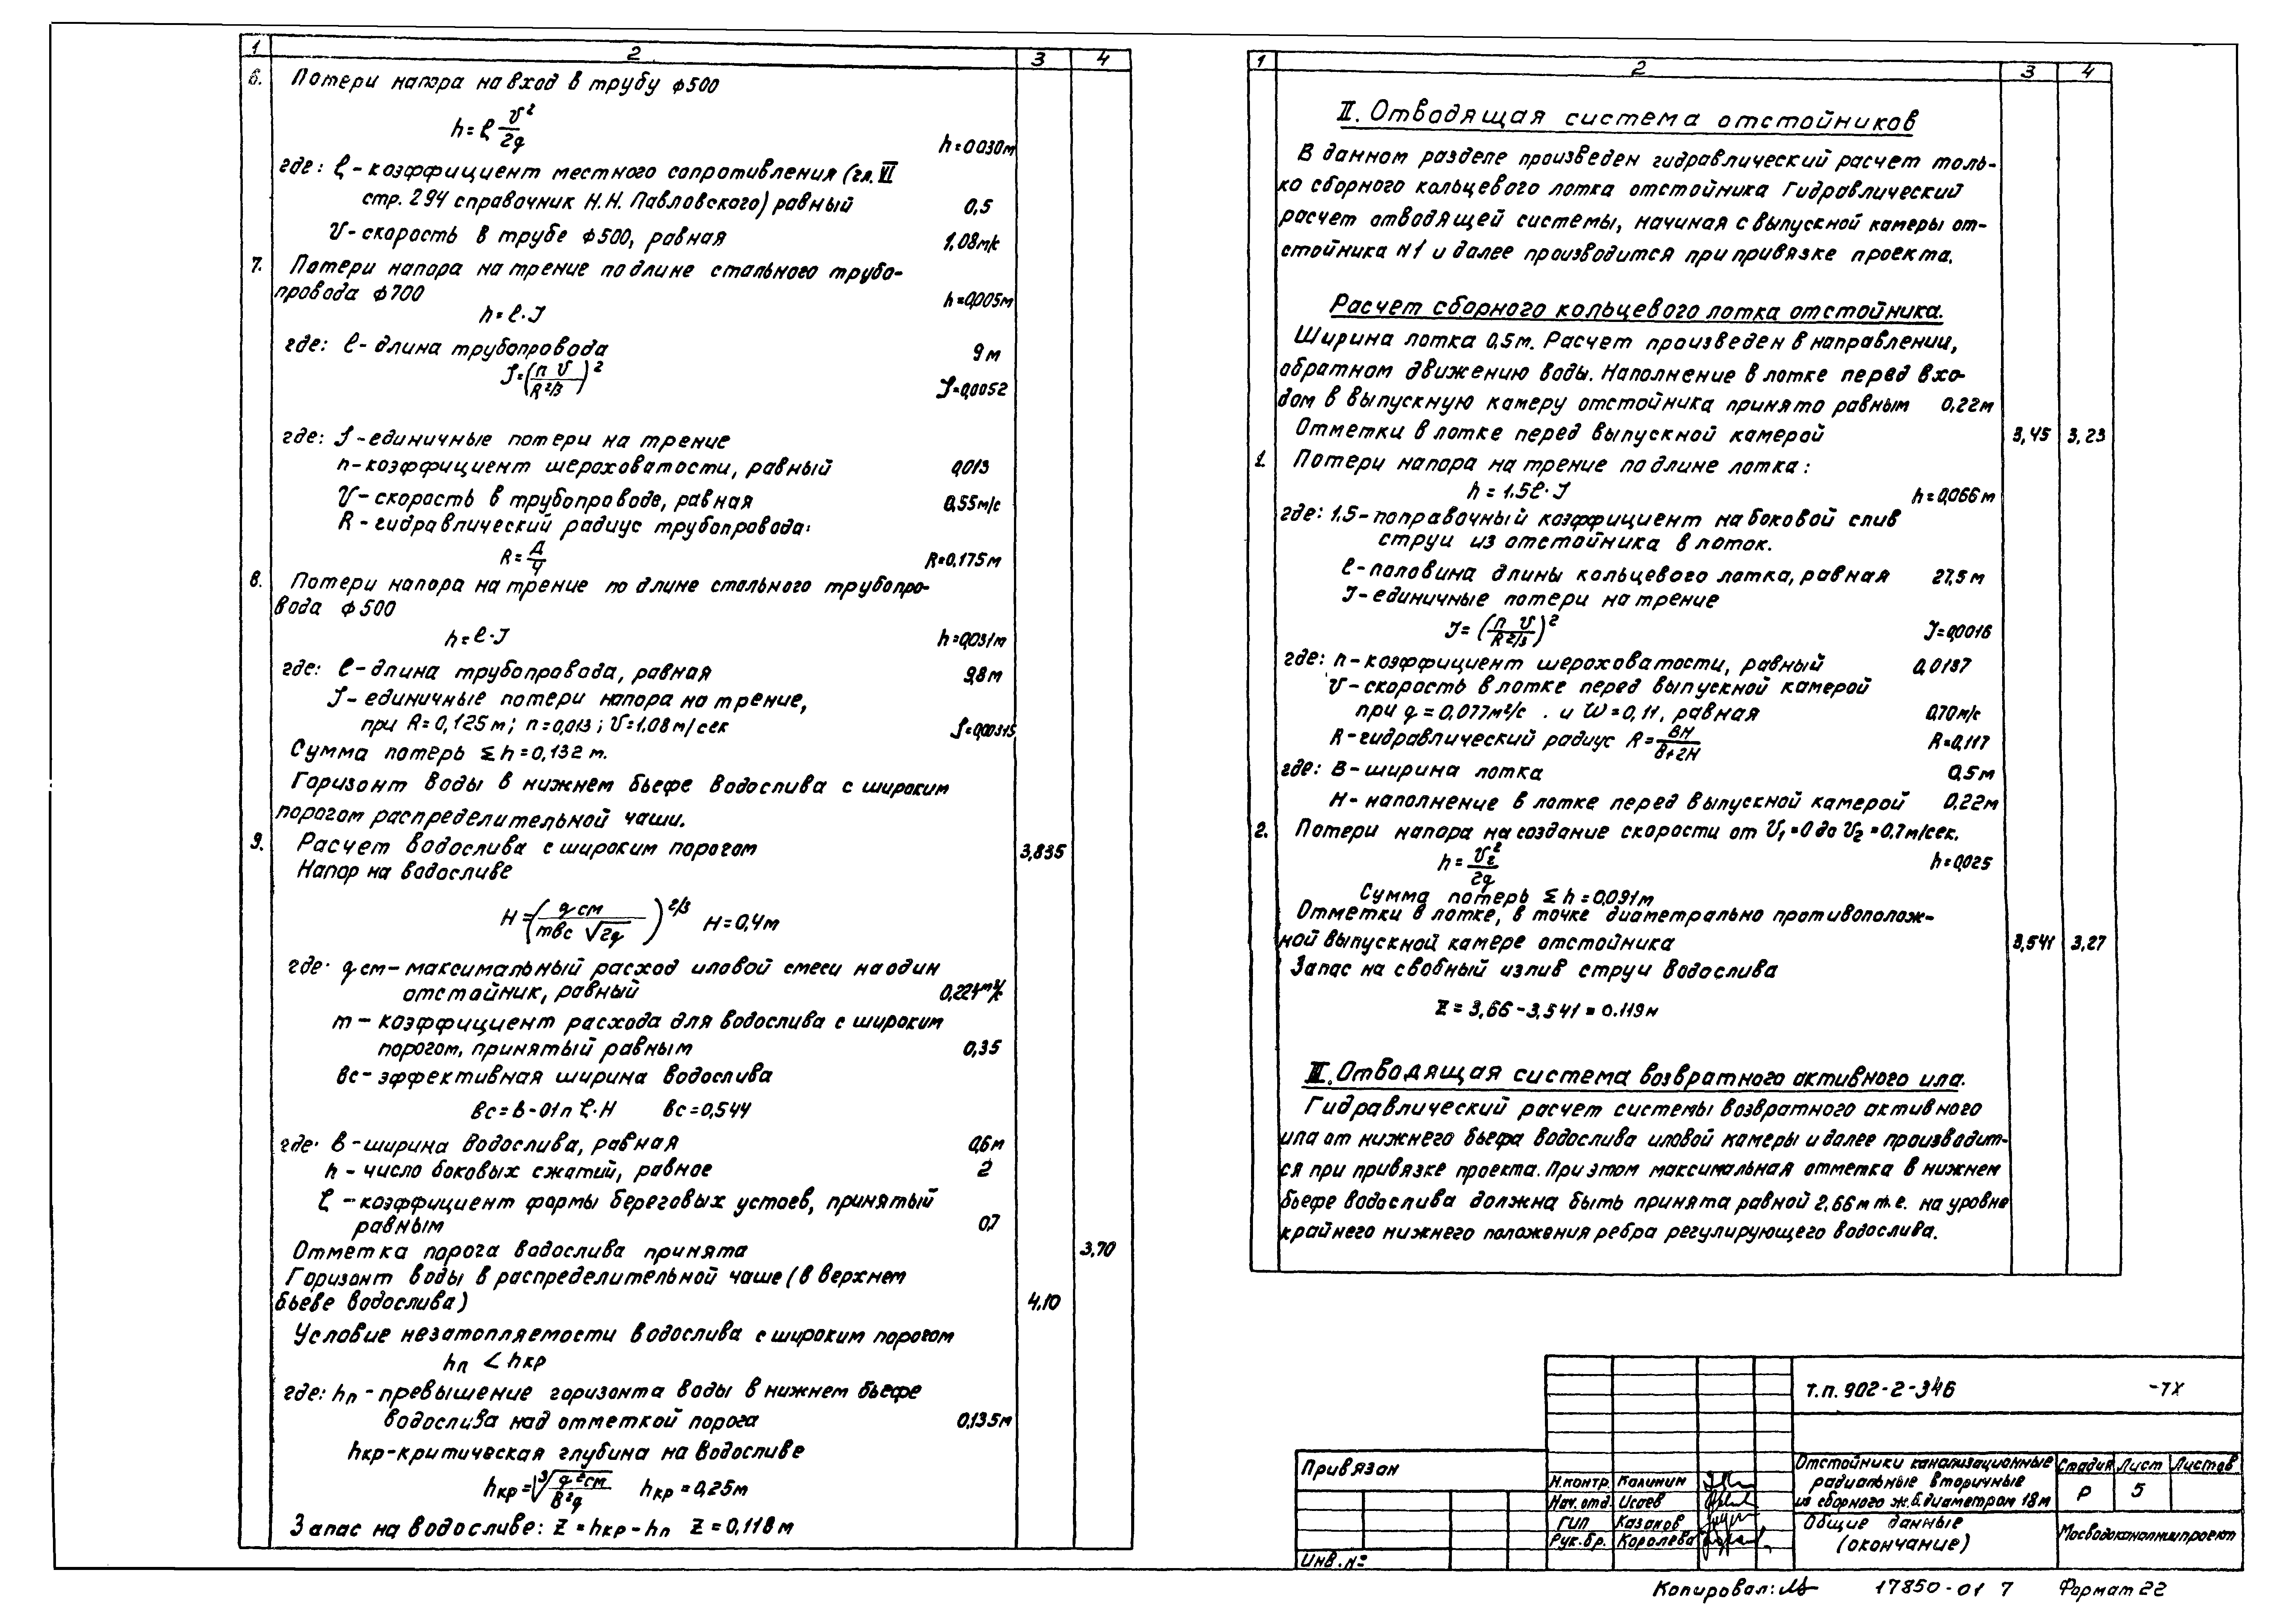 1 2 3 4
6. Потери напора на вход в трубу ф500
h = ξ v²/2g h=0030м
где: ξ - коэффициент местного сопротивления (гл. VI
стр. 294 справочник Н.Н. Павловского) равный 0,5
v - скорость в трубе ф500, равная 1,08м/с
7. Потери напора на трение по длине стального трубо-
провода ф700 h=0,005м
h = ℓ·J
где: ℓ - длина трубопровода 9м
J = (n v / R^2/3)² J=0,0052
где: J - единичные потери на трение
n - коэффициент шероховатости, равный 0,013
v - скорость в трубопроводе, равная 0,55м/с
R - гидравлический радиус трубопровода:
R = Д/4 R=0,175м
8. Потери напора на трение по длине стального трубопро-
вода ф500
h = ℓ·J h=0,031м
где: ℓ - длина трубопровода, равная 9,8м
J - единичные потери напора на трение,
при R=0,125м; n=0,013; v=1.08м/сек J=0,00315
Сумма потерь Σh=0,132 м.
Горизонт воды в нижнем бьефе водослива с широким
порогом распределительной чаши.
9. Расчет водослива с широким порогом 3,835
Напор на водосливе
H = (q см / mвс √2g)^2/3 H=0,4м
где· q см - максимальный расход иловой смеси на один
отстойник, равный 0,224м³/с
m - коэффициент расхода для водослива с широким
порогом, принятый равным 0,35
вс - эффективная ширина водослива
вс = в - 01n ξ·H вс=0,544
где· в - ширина водослива, равная 0,6м
n - число боковых сжатий, равное 2
ξ - коэффициент формы береговых устоев, принятый
равным 0,7
Отметка порога водослива принята 3,70
Горизонт воды в распределительной чаше (в верхнем
бьеве водослива) 4.10
Условие незатопляемости водослива с широким порогом
hп < hкр
где: hп - превышение горизонта воды в нижнем бьефе
водослива над отметкой порога 0,135м
hкр - критическая глубина на водосливе
hкр = ³√(q²см / B²g) hкр = 0,25м
Запас на водосливе: Z = hкр - hп Z = 0,118м
1 2 3 4
II. Отводящая система отстойников
В данном разделе произведен гидравлический расчет толь-
ко сборного кольцевого лотка отстойника Гидравлический
расчет отводящей системы, начиная с выпускной камеры от-
стойника N1 и далее производится при привязке проекта.
Расчет сборного кольцевого лотка отстойника.
Ширина лотка 0,5м. Расчет произведен в направлении,
обратном движению воды. Наполнение в лотке перед вхо-
дом в выпускную камеру отстойника принято равным 0,22м
Отметки в лотке перед выпускной камерой 3,45 3,23
1. Потери напора на трение по длине лотка:
h = 1.5ℓ·J h=0,066м
где: 1.5 - поправочный коэффициент на боковой слив
струи из отстойника в лоток.
ℓ - половина длины кольцевого лотка, равная 27,5м
J - единичные потери на трение
J = (n v / R^2/3)² J=0,0016
где: n - коэффициент шероховатости, равный 0,0137
v - скорость в лотке перед выпускной камерой
при q = 0,077м³/с . и W = 0,11, равная 0,70м/с
R - гидравлический радиус R = BH/B+2H R=0,117
где: B - ширина лотка 0,5м
H - наполнение в лотке перед выпускной камерой 0,22м
2. Потери напора на создание скорости от v₁=0 до v₂=0,7м/сек.
h = v₂²/2g h=0,025
Сумма потерь Σh=0,091м
Отметки в лотке, в точке диаметрально противополож-
ной выпускной камере отстойника 3,541 3,27
Запас на свобный излив струи водослива
Z = 3,66 - 3,541 = 0.119м
III. Отводящая система возвратного активного ила.
Гидравлический расчет системы возвратного активного
ила от нижнего бьефа водослива иловой камеры и далее производит-
ся при привязке проекта. При этом максимальная отметка в нижнем
бьефе водослива должна быть принята равной 2,66м т.е. на уровне
крайнего нижнего положения ребра регулирующего водослива.
Т.п. 902-2-346 -ТХ
Привязан
Инв. №
Н.контр. Калинин
Нач. отд. Исаев
ГИП Казанов
Рук. бр. Королева
Отстойники канализационные
радиальные вторичные
из сборного ж.б. диаметром 18м
Стадия Лист Листов
Р 5
Общие данные
(окончание)
Мосводоканалниипроект
Копировал: 17850-01 7 Формат 22